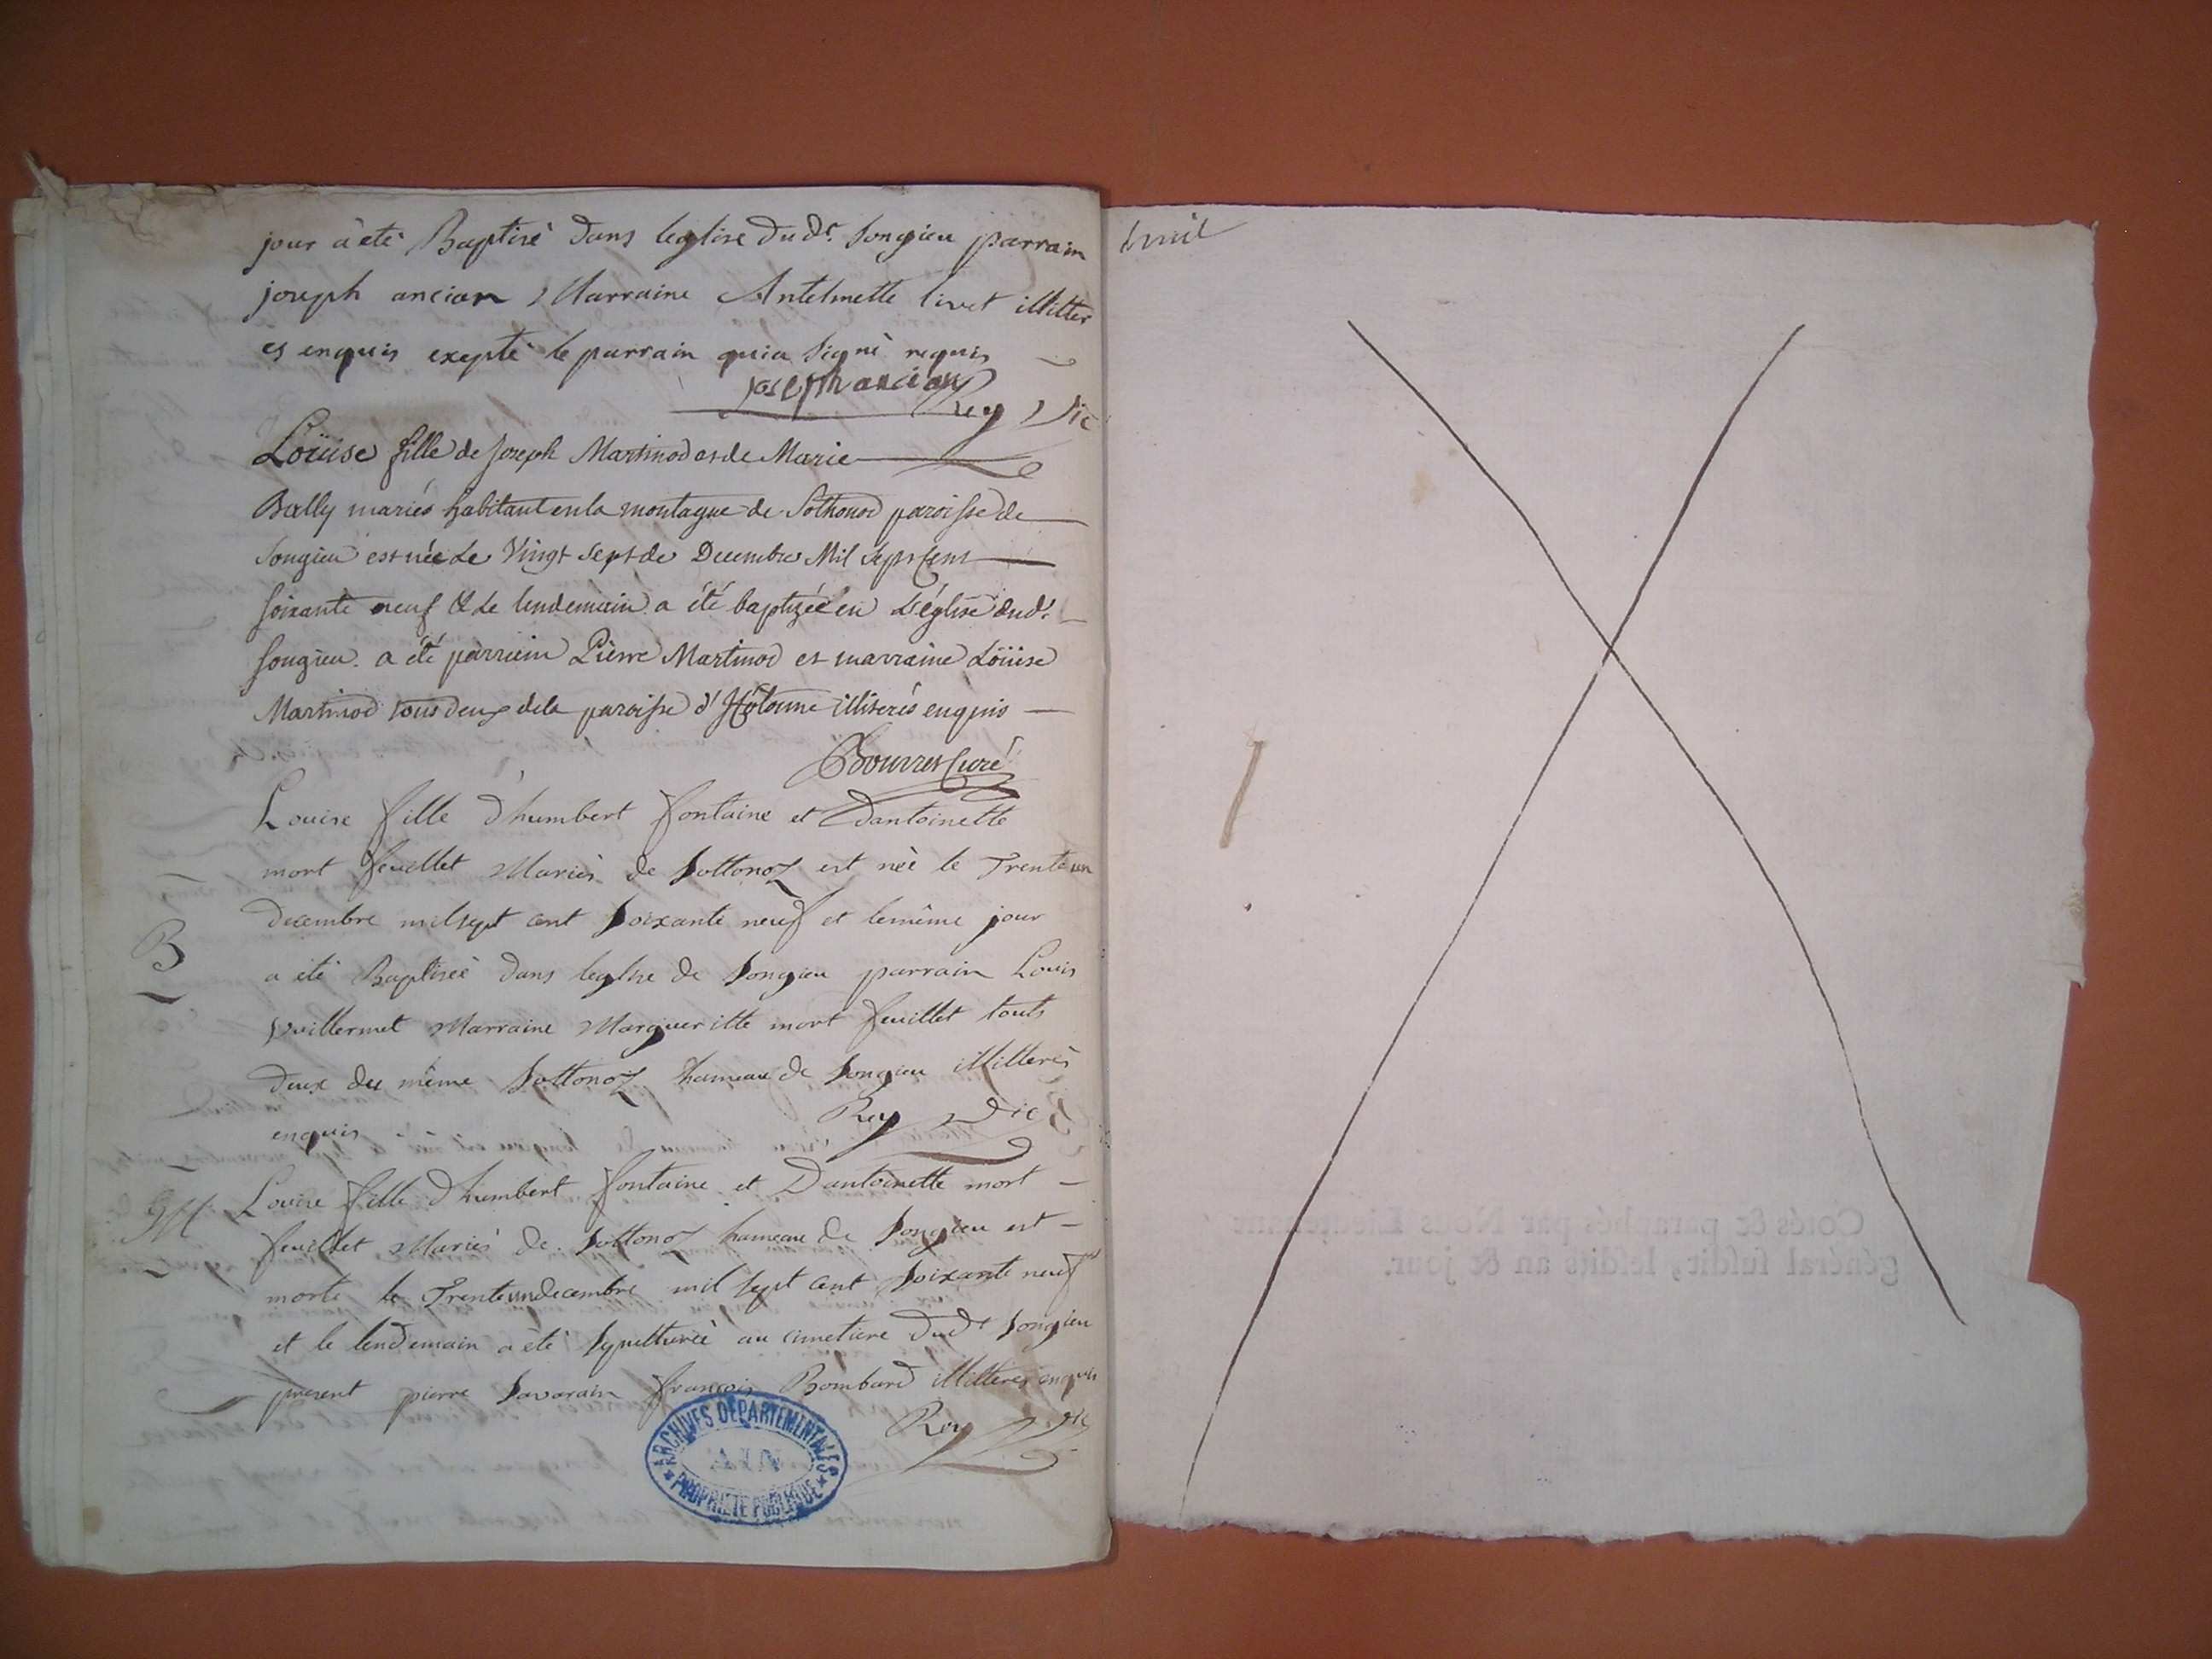 jour à eté Baptisé dans leglise du dt. songieu parrain
joseph ancian Marraine Antelmette livet illitter
es enquis exepté le parrain quia signé requis
joseph ancian
Rey Vic
Loüise fille de Joseph Martinod et de Marie
Bally mariés habitant en la montagne de Sothonod paroisse de
Songieu est née le Vingt sept de Decembre Mil sept Cent
soixante neuf & le lendemain a été baptizée en L'église dudt.
songieu. a été parrain Pierre Martinod et marraine Loüise
Martinod tous deux de la paroisse d'Hotonne illiterés enquis
Bourret Curé
Louise fille d'humbert fontaine et Dantoinette
mort feuillet Mariés de sottonoz est née le Trente un
decembre mil sept cent soixante neuf et lemême jour
B
a été Baptisée dans leglise de songieu parrain Louis
vuillermet Marraine Margueritte mort feuillet touts
deux du même sottonoz hameau de songieu illitterés
enquis
Rey Vic
M
Louise fille d'humbert fontaine et Dantoinette mort
feuillet Mariés de sottonoz hameau de songieu est
morte le Trente un decembre mil sept cent soixante neuf
et le lendemain a été sepulturée au cimetiere dudt songieu
present pierre savarain françois Bombard illitterés enquis
Rey Vic
ARCHIVES DÉPARTEMENTALES
AIN
PROPRIÉTÉ PUBLIQUE
Cotés & paraphés par Nous Lieutenant
général susdit, lesdits an & jour.